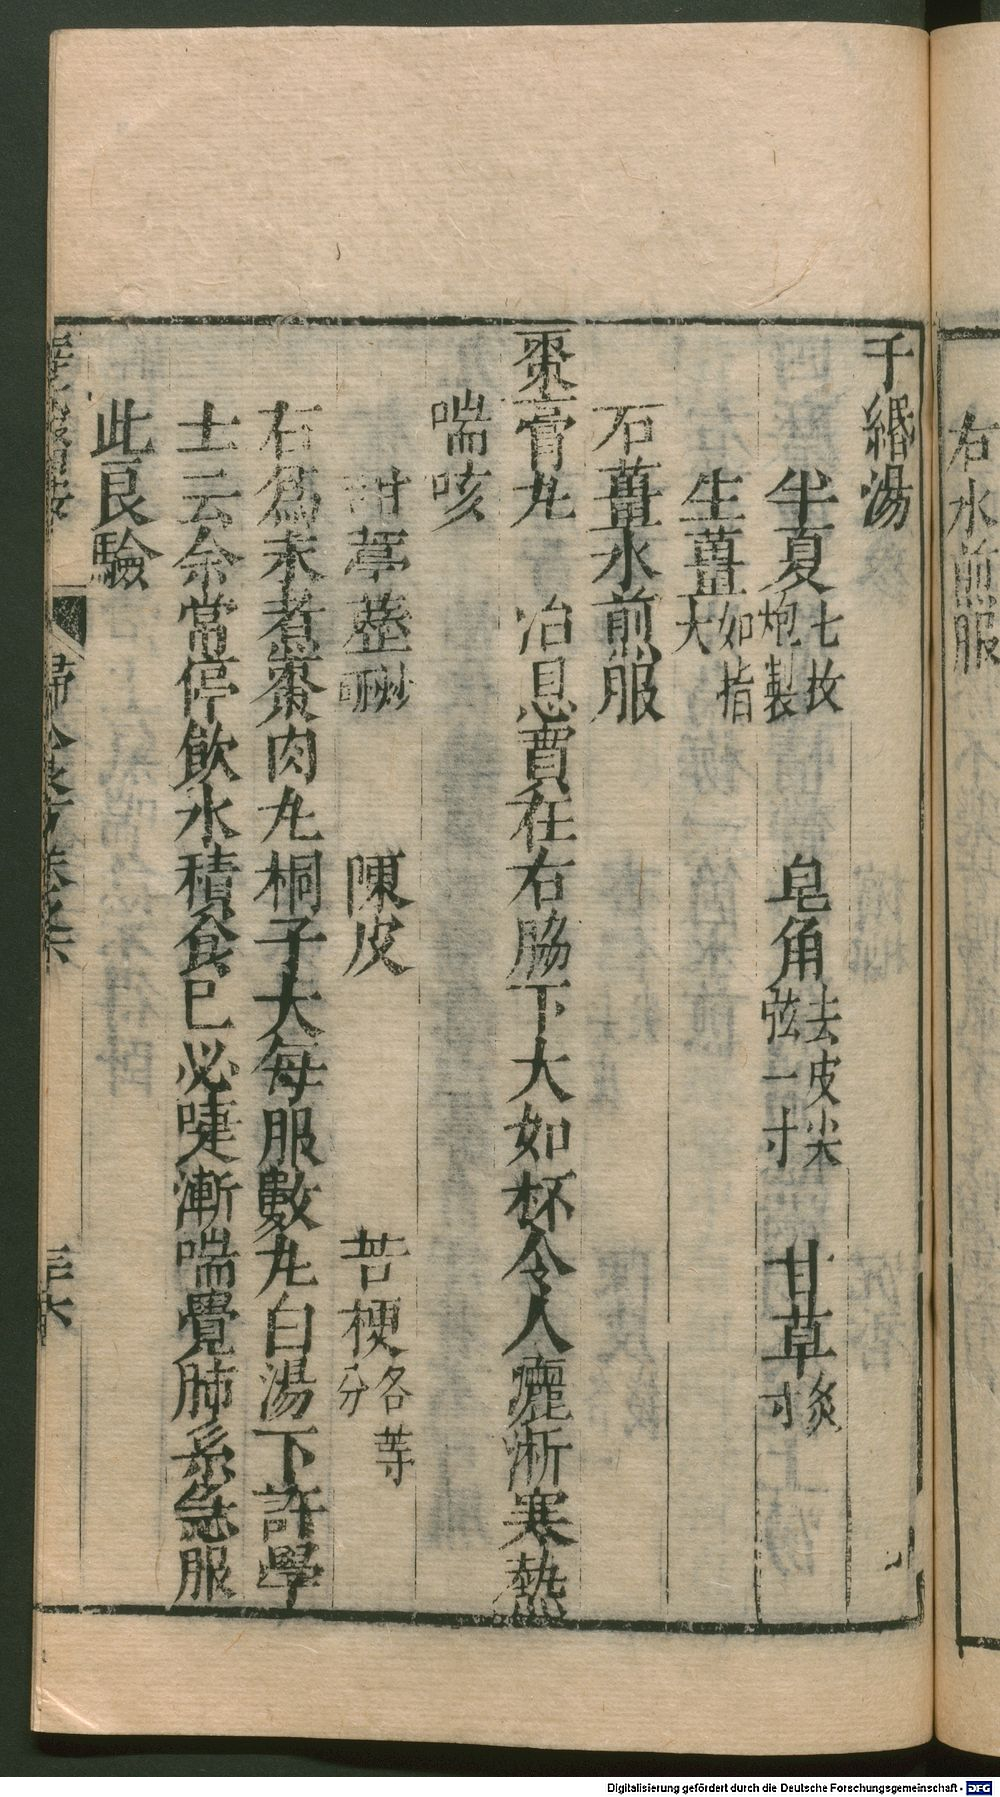 右水煎服
千緡湯
半夏七枚炮製 皂角去皮尖弦一寸 甘草炙寸
生薑如指大
右薑水煎服
棗膏丸 治息賁在右脇下大如杯令人癧淅寒熱
喘咳
甜葶藶 陳皮 苦梗各等分
右為末煮棗肉丸桐子大每服數丸白湯下許學
士云余常停飲水積食已必嚏漸喘覺肺系急服
此良驗
歸 卷 三六
Digitalisierung gefördert durch die Deutsche Forschungsgemeinschaft - DFG